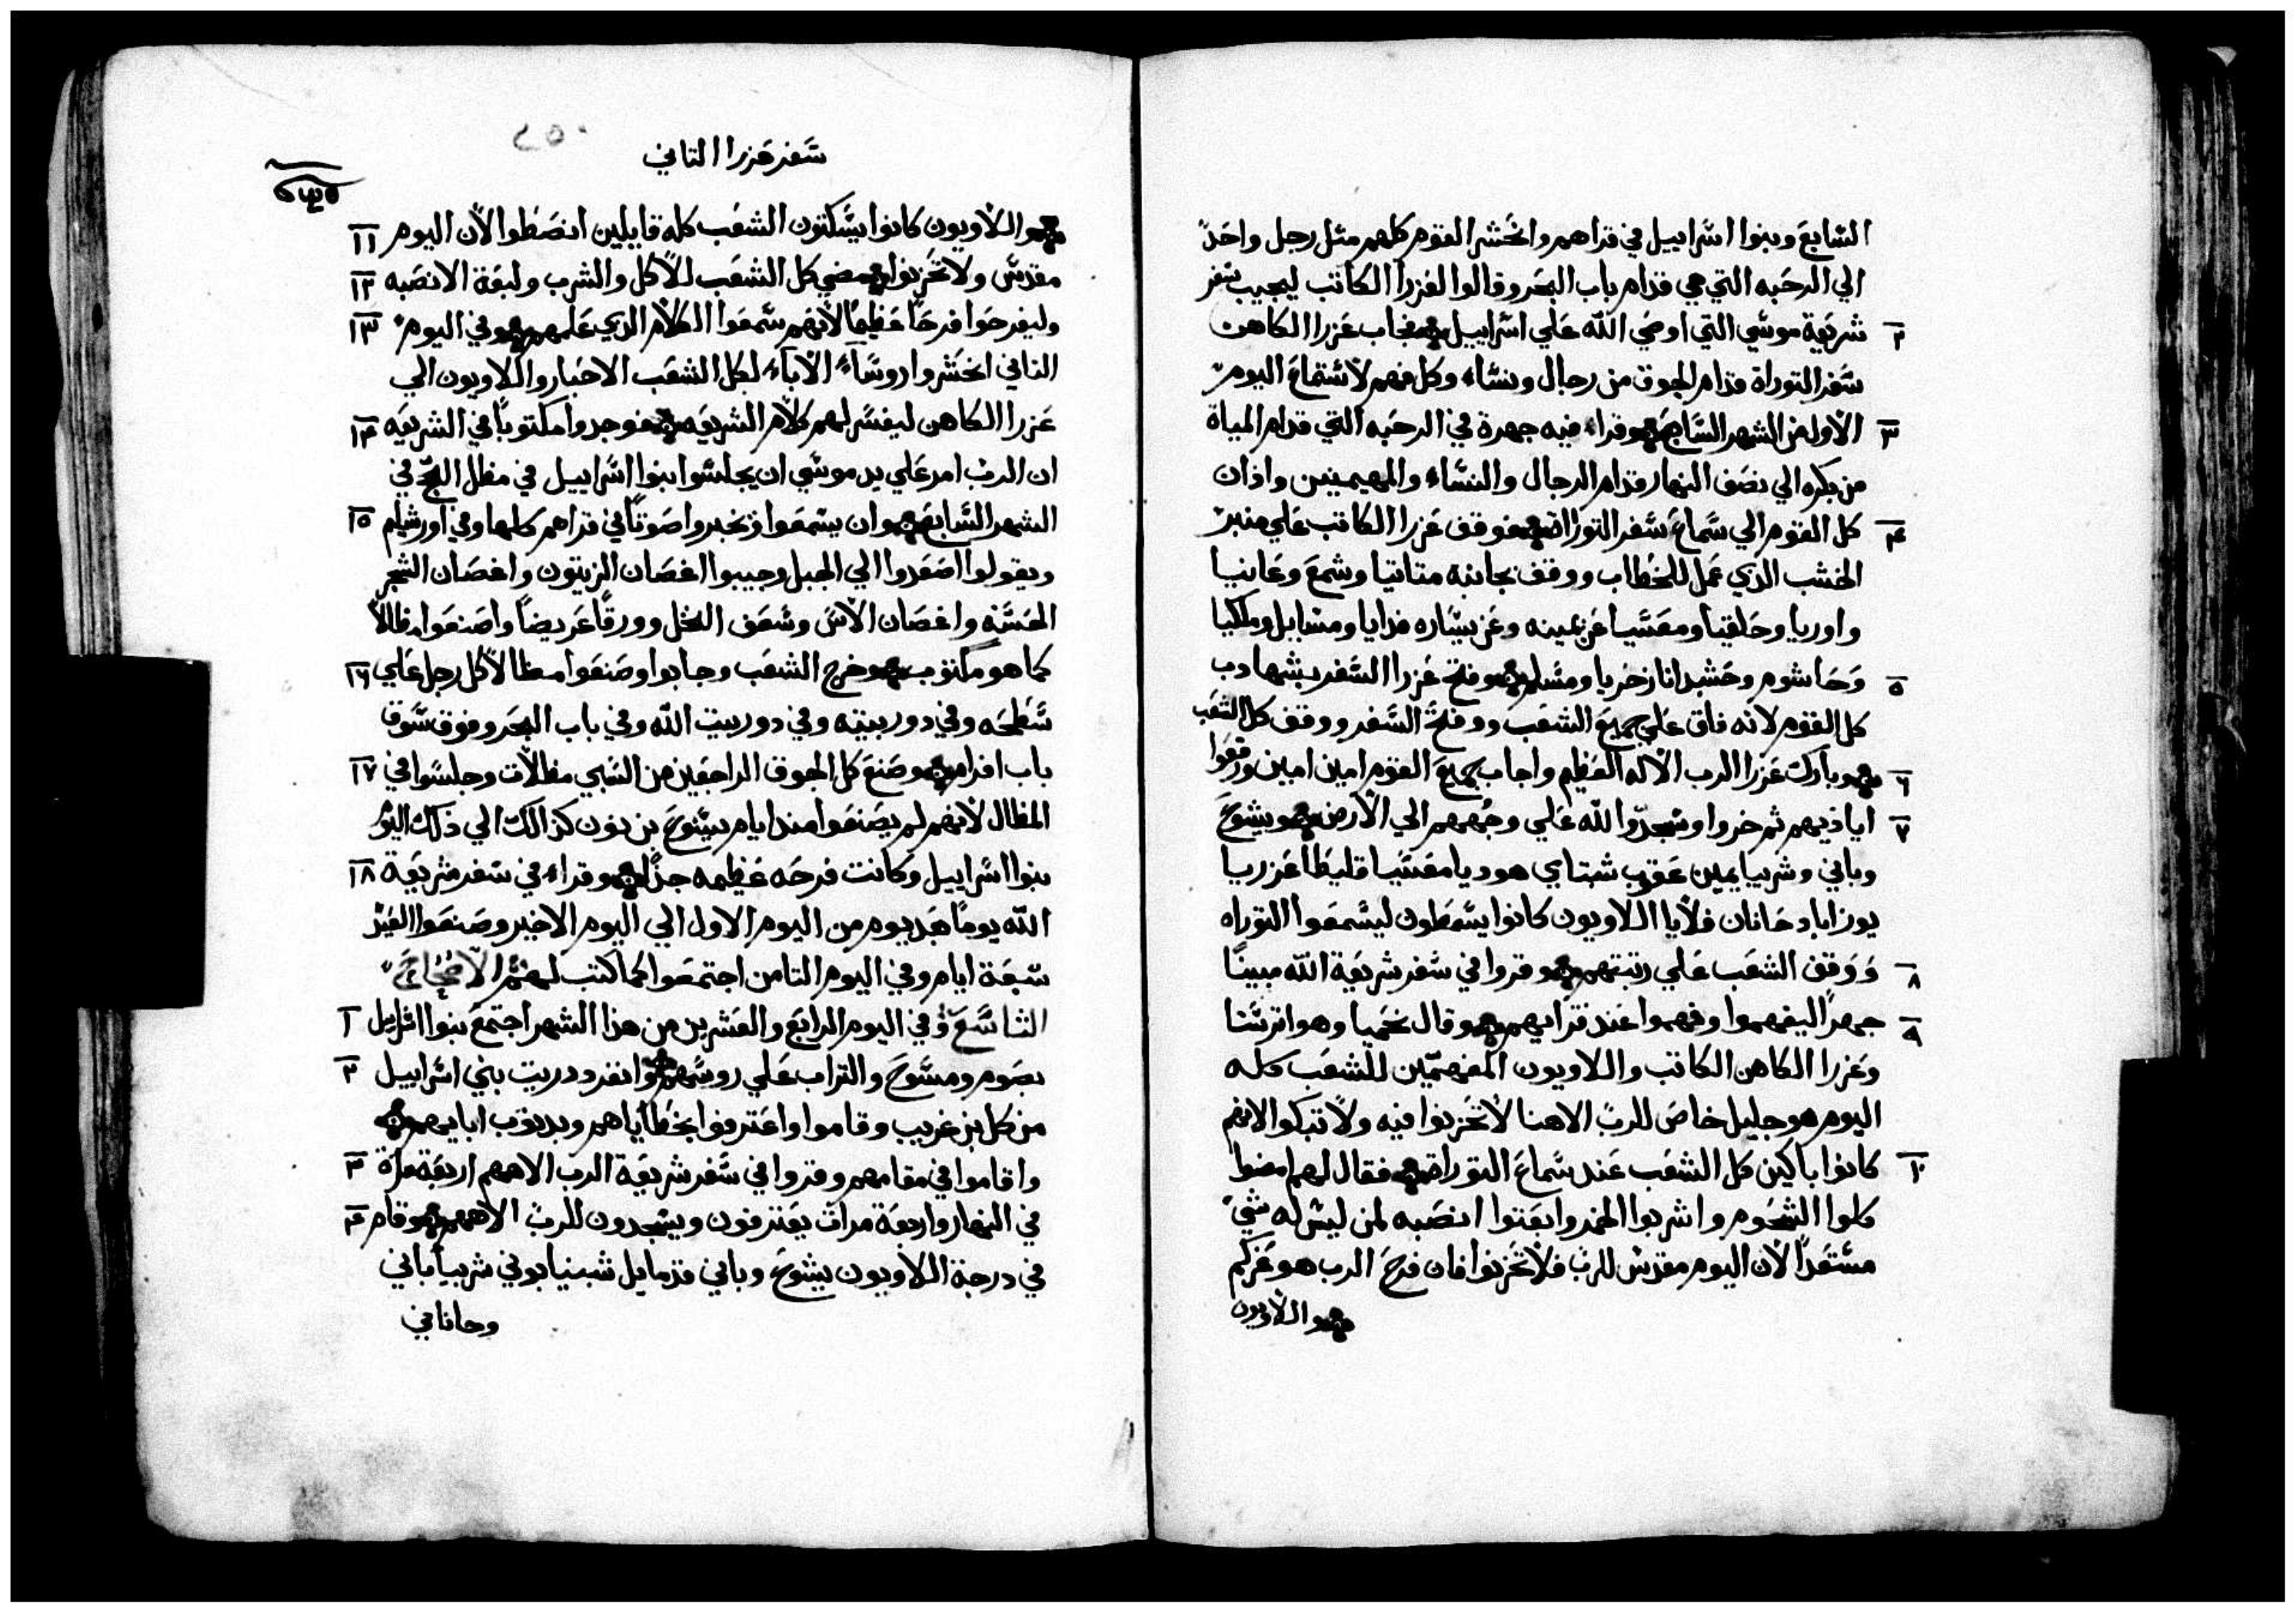 السابع وبنوا اسراييل في قراهم وانحشر القوم كلهم مثل رجل واحد
الي الرحبه التي هي قدام باب البحر وقالوا لعزرا الكاتب ليجيب سفر
٢ شريعة موسي التي اوصي الله علي اسراييل فجاب عزرا الكاهن
سفر التوراة قدام الجوق من رجال ونساء وكل فهم لاستماع اليوم
٣ الاول من الشهر السابع وقراء فيه جهرة في الرحبه التي قدام المياة
من بكره الي نصف النهار قدام الرجال والنساء والمهيمنين واذان
٤ كل القوم الي سماع سفر التوراة فوقف عزرا الكاتب علي منبر
الخشب الدي عمل للخطاب ووقف بجانبه متاتيا وشمع وعانيا
واوريا وحلقيا ومعسيا عن يمينه وعن يساره فدايا ومشايل وملكيا
٥ وحاشوم وحشبدانا زخريا ومسلم وفتح عزرا السفر بشهادب
كل القوم لانه فاق علي جميع الشعب ووفتح السفر ووقف كل الشعب
٦ وبارك عزرا الرب الاله العظيم واجاب جميع القوم امين امين ورفعوا
٧ اياديهم ثم خروا وسجدوا لله علي وجههم الي الارض ويشوع
وباني وشربيا يمين عقوب شبتاي هوديا معسيا قليطا عزريا
يوزاباد حانان فلايا اللاويون كانوا يسعطون ليسمعوا التوراه
٨ ووقف الشعب علي رتبتهم وقروا في سفر شريعة الله مبينا
٩ جهرا ليفهموا وفهموا عند قرايهم وقال نحميا وهو اترستا
وعزرا الكاهن الكاتب واللاويون المفهمين للشعب كله
اليوم هو جليل خاص للرب الاهنا لا تحزنوا فيه ولا تبكوا لانهم
١٠ كانوا باكين كل الشعب عند سماع التوراة فقال لهم امضوا
كلوا الشحوم واشربوا الخمر وابعتوا انصبه لمن ليس له شي
مستعدا لان اليوم مقدس للرب فلا تحزنوا فان فرح الرب هو عزكم
واللاويون
سفر عزرا التاني
٢٥٠
واللاويون كانوا يسكتون الشعب كله قايلين انصطوا لان اليوم ١١
مقدس ولا تحزنوا فمضي كل الشعب للاكل والشرب ولبعة الانصبه ١٢
وليفرحوا فرحا عظيما لانهم سمعوا الكلام الدي علمهم وفي اليوم ١٣
الثاني انحشروا روساء الاباء لكل الشعب الاحبار واللاويون الي
عزرا الكاهن ليفسر لهم كلام الشريعه فوجدوا مكتوبا في الشريعه ١٤
ان الرب امر علي يد موسي ان يجلسوا بنوا اسراييل في مظل الحج في
الشهر السابع وان يسمعوا ونخبروا صوتا في قراهم كلها وفي اورشيلم ١٥
ويقولوا اصعدوا الي الجبل وجيبوا اغصان الزيتون واغصان الشجر
الحسنه واغصان الاس وسعف النخل وورقا عريضا واصنعوا مظالا
كما هو مكتوب وخرج الشعب وجابوا وصنعوا مظالا كل رجل علي ١٦
سطحه وفي دور بيته وفي دور بيت الله وفي باب البحر وفوق سوق
باب افرام وصنع كل الجوق الراجعين من السبي مظلات وجلسوا في ١٧
المظال لانهم لم يصنعوا مند ايام يشوع بن نون كذالك الي ذلك اليوم
بنوا اسراييل وكانت فرحه عظيمه جدا وقراء في سفر شريعة ١٨
الله يوما بعد يوم من اليوم الاول الي اليوم الاخير وصنعوا العيد
سبعة ايام وفي اليوم التامن اجتمعوا كما كتب لهم الاصحاح
التاسع وفي اليوم الرابع والعشرين من هذا الشهر اجتمع بنوا اسراييل ١
بصوم ومسوح والتراب علي روسهم وانفردت دريت بني اسراييل ٢
من كل بن غريب وقاموا واعترفوا بخطاياهم وبدنوب ابايهم
واقاموا في مقامهم وقروا في سفر شريعة الرب الاههم اربعة مراة ٣
في النهار واربعة مرات يعترفون ويسجدون للرب الاههم وقام ٤
في درجة اللاويون يشوع وباني وقدمايل شبنيا بوني شربيا باني
وحاناني